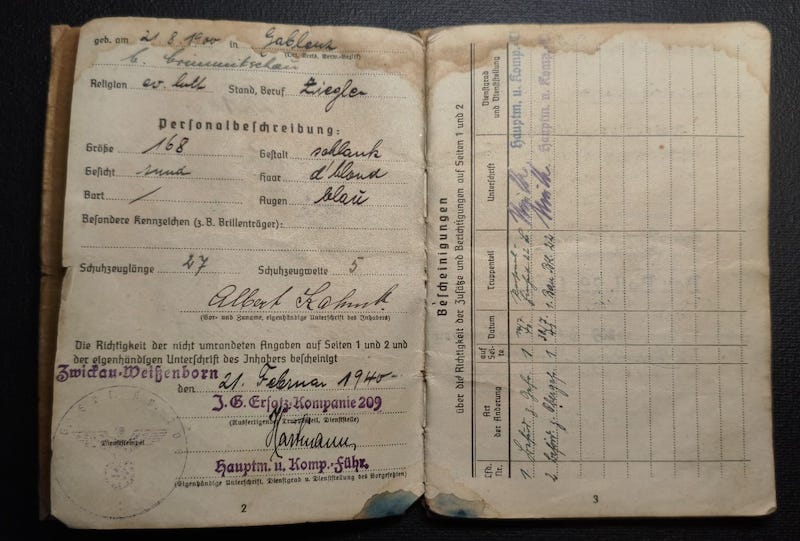 geb. am 21.8.1900 in Gablenz
(Ort, Kreis, Verw.-Bezirk)
b. Crimmitschau
Religion ev. luth Stand, Beruf Ziegler
Personalbeschreibung:
Größe 168 Gestalt schlank
Gesicht rund Haar d'blond
Bart / Augen blau
Besondere Kennzeichen (z.B. Brillenträger):
Schuhzeuglänge 27 Schuhzeugweite 5
Albert
(Vor- und Zuname, eigenhändige Unterschrift des Inhabers)
Die Richtigkeit der nicht umrandeten Angaben auf Seiten 1 und 2 und
der eigenhändigen Unterschrift des Inhabers bescheinigt
Zwickau-Weißenborn
den 21. Februar 1940
J. G. Ersatz-Kompanie 209
(Ausfertigender Truppenteil, Dienststelle)
Hartmann
Hauptm. u. Komp.-Führ.
(Eigenhändige Unterschrift, Dienstgrad u. Dienststellung des Vorgesetzten)
Dienststempel
2
Bescheinigungen
über die Richtigkeit der Zusätze und Berichtigungen auf Seiten 1 und 2
Lfd. Nr.
Art der Änderung
auf Seite
Datum
Truppenteil
Unterschrift
Dienstgrad und Dienststellung
1. 1
Hauptm. u. Komp.
2. 1
Hauptm. u. Komp.
3